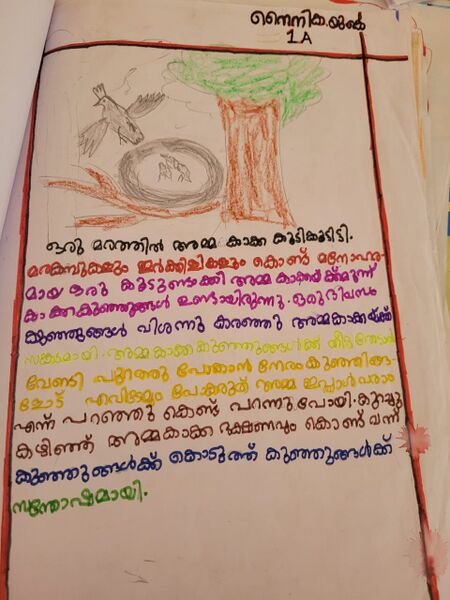 നൈനിക യുകെ
1 A
ഒരു മരത്തിൽ അമ്മ കാക്ക കൂടികൂടിടി.
മരക്കമ്പുകളും ഇർക്കിളികളും കൊണ്ട് മനോഹര
മായ ഒരു കൂടുണ്ടാക്കി അമ്മ കാക്കയ്ക്ക്മൂന്ന്
കാക്കകുഞ്ഞുങ്ങൾ ഉണ്ടായിരുന്നു. ഒരു ദിവസം
കുഞ്ഞുങ്ങൾ വിശന്നു കരഞ്ഞു അമ്മകാക്കയ്ക്ക്
സങ്കടമായി. അമ്മ കാക്ക കുഞ്ഞുങ്ങൾക്ക്
വേണ്ടി പുറത്തു പോകാൻ നേരം കുഞ്ഞിങ്ങ
ളോട് എവിടേയും പോകരുത് അമ്മ ഇപ്പോൾ വരാം
എന്ന് പറഞ്ഞു കൊണ്ട് പറന്നു പോയി. കുറച്ചു
കഴിഞ്ഞ് അമ്മകാക്ക ഭക്ഷണവും കൊണ്ട് വന്ന്
കുഞ്ഞുങ്ങൾക്ക് കൊടുത്ത് കുഞ്ഞുങ്ങൾക്ക്
സന്തോഷമായി.